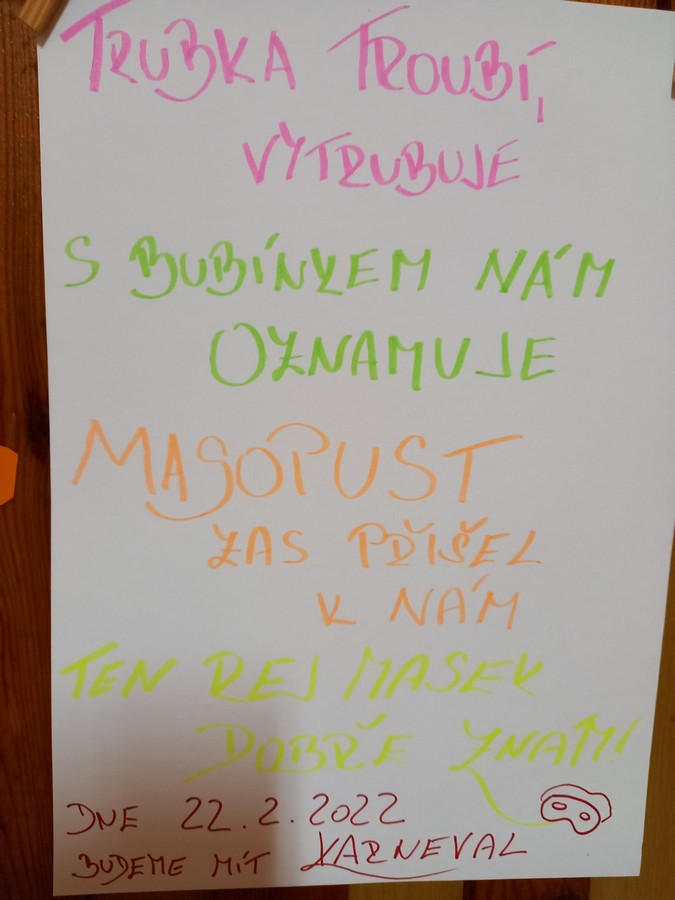 TRUBKA TROUBÍ,
VYTRUBUJE
S BUBÍNKEM NÁM
OZNAMUJE
MASOPUST
ZAS PŘIŠEL
K NÁM
TEN REJ MASEK
DOBŘE ZNÁM!
DNE 22.2.2022
BUDEME MÍT KARNEVAL